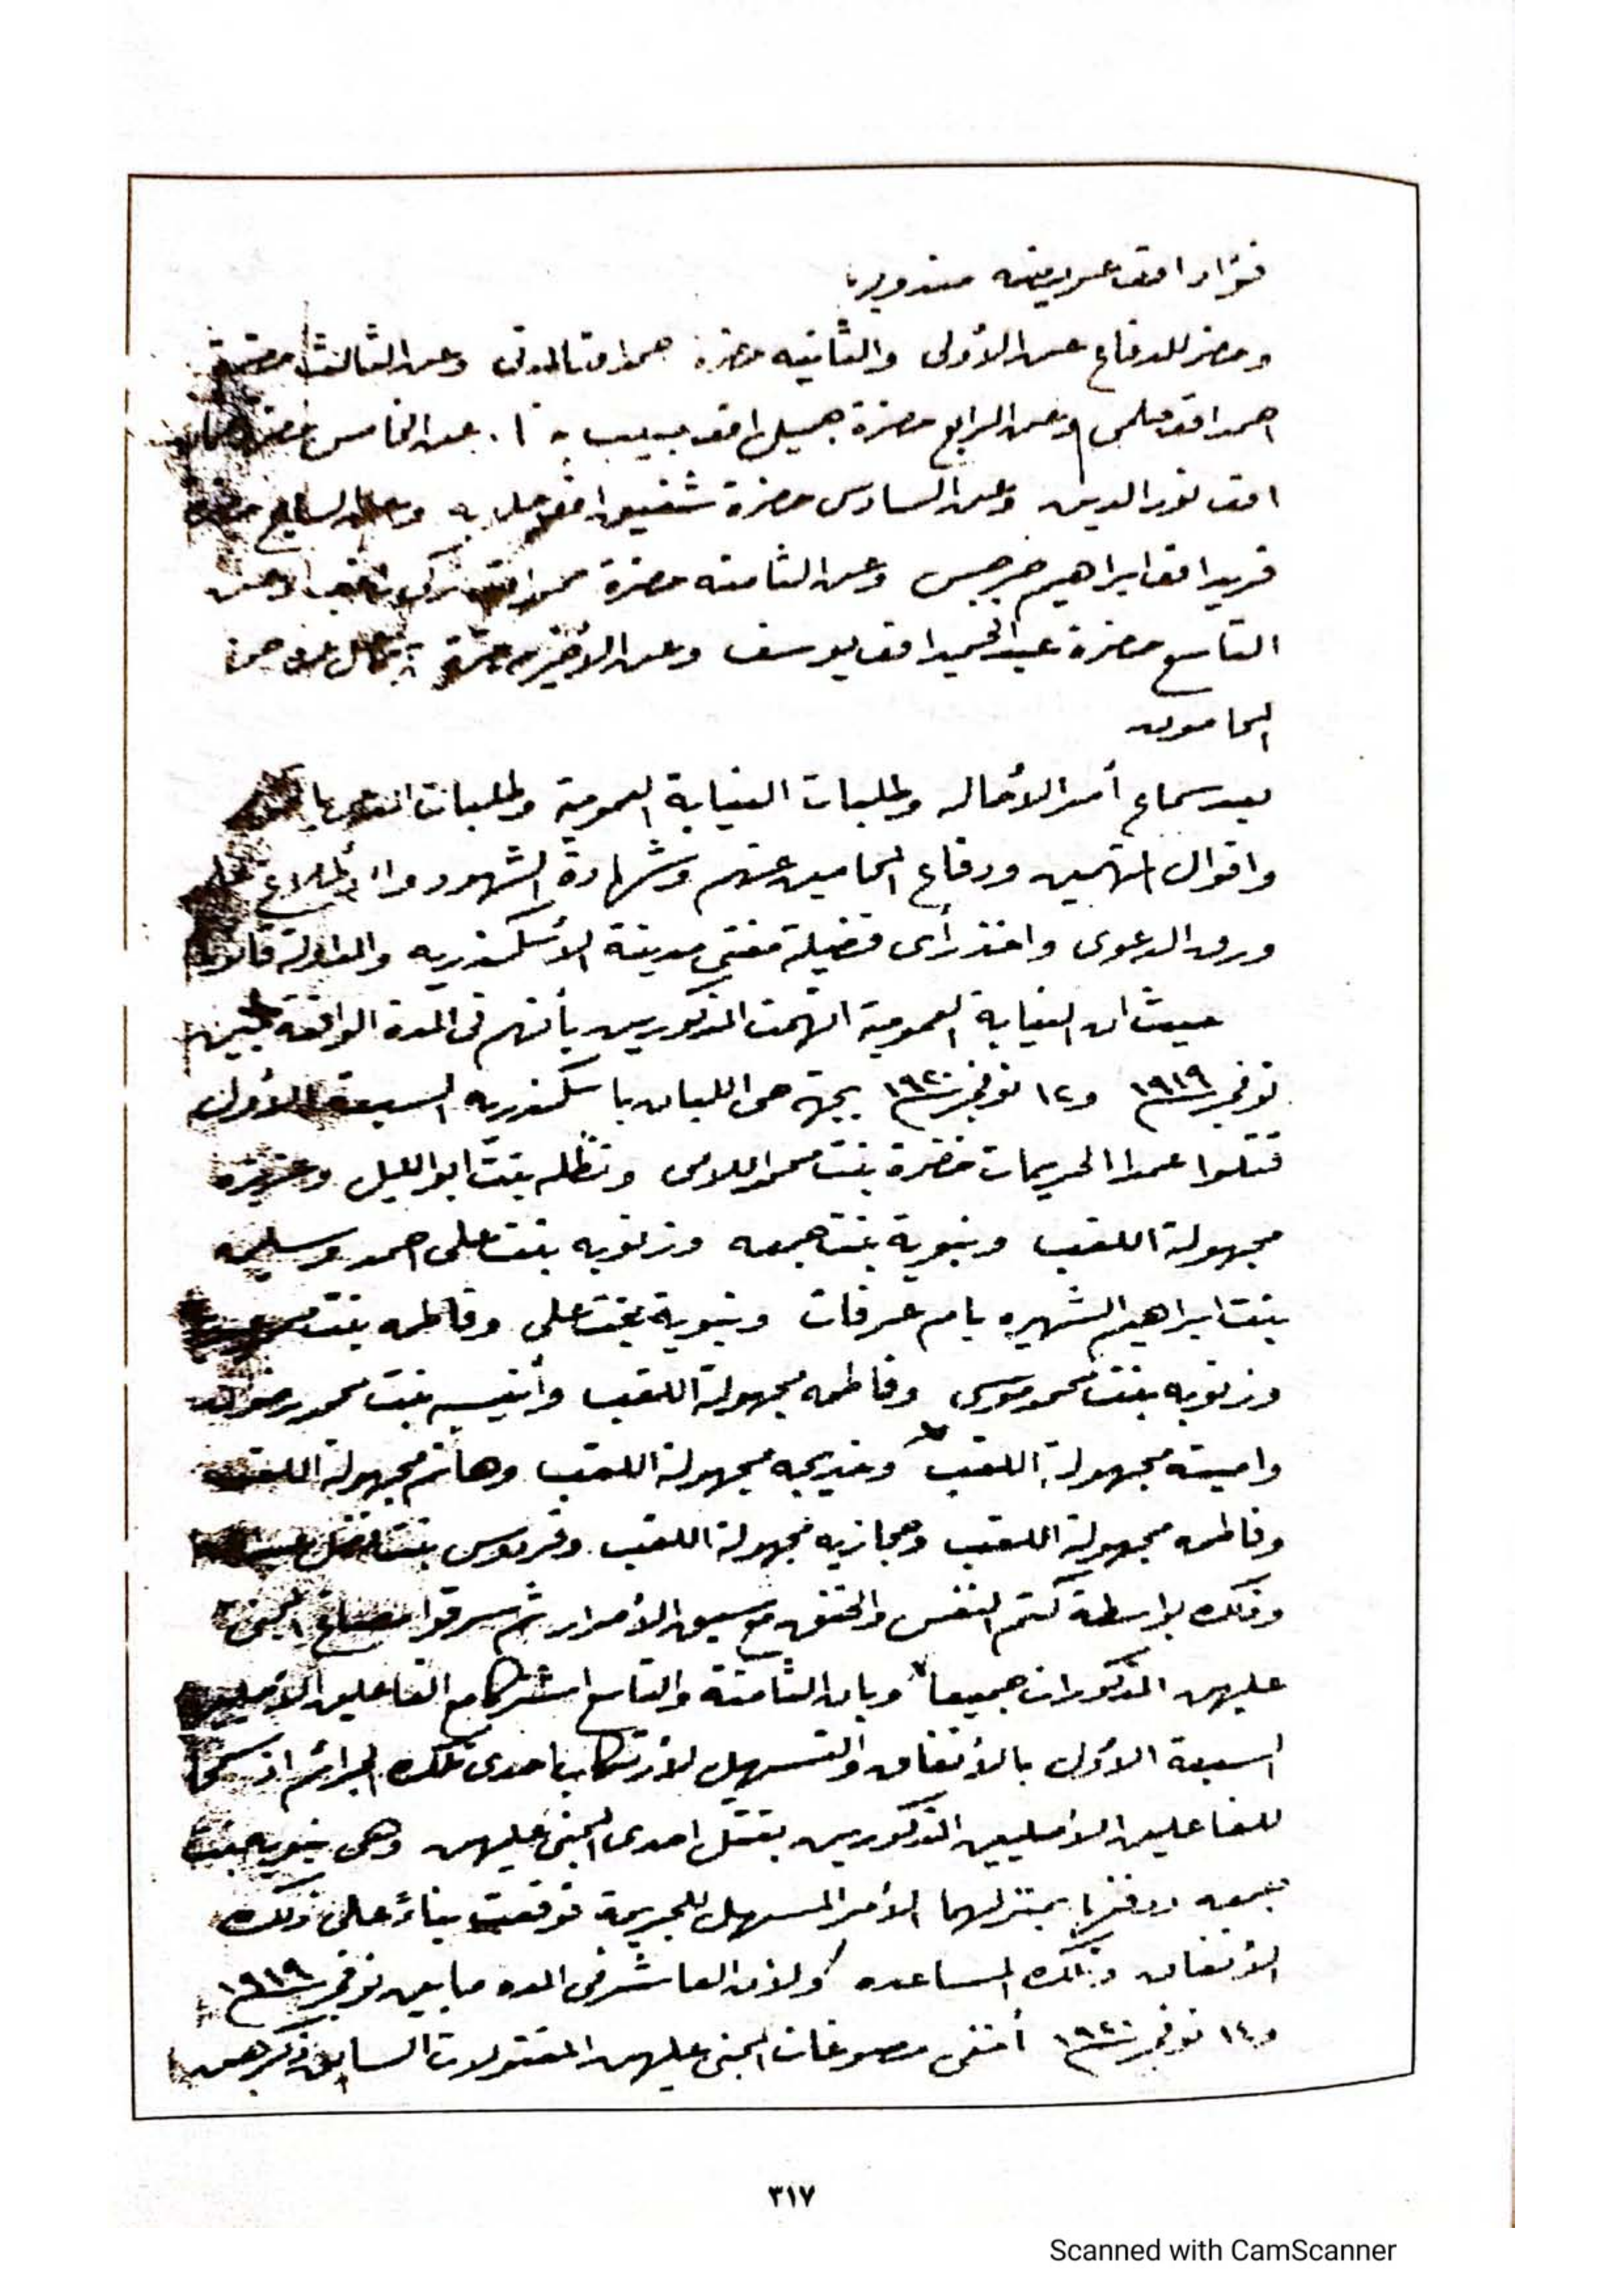 وحضر للدفاع عن الأولى والثانيه حضرة احمد افندى المدنى وعن الثالث حضرة
احمد افندى حلمى وعن الرابع حضرة جميل افندى وعن الخامس حضرة
افندى نور الدين وعن السادس حضرة شفيق افندى وعن السابع حضرة
فريد افندى ابراهيم جرجس وعن الثامنه حضرة محمد افندى وعن
التاسع حضرة عبد الحميد افندى يوسف وعن الأخير حضرة
المحامون
بعد سماع أمر الأحاله وطلبات النيابة العمومية وطلبات المدعى
واقوال المتهمين ودفاع المحامين عنهم وشهادة الشهود والأطلاع على
ورق الدعوى واخذ رأى فضيلة مفتى مدينة الأسكندريه والمداولة قانونا
حيث ان النيابة العمومية اتهمت المذكورين بأنهم فى المدة الواقعة بين
نوفمبر سنة ١٩١٩ و١٢ نوفمبر سنة ١٩٢٠ بجهة حى اللبان باسكندريه السبعة الأول
قتلوا عمدا الحريمات خضرة بنت محمد اللامى ونظله بنت ابو الليل وعزيزه
مجهولة اللقب ونبوية بنت جمعه وزنوبه بنت على احمد وسليمه
بنت ابراهيم الشهيره بام عرفات ونبوية بنت على وفاطمه بنت
وزنوبه بنت محمد موسى وفاطمه مجهولة اللقب وأنيسه بنت محمد رضوان
وامينه مجهولة اللقب وخديجه مجهولة اللقب وهانم مجهولة اللقب
وفاطمه مجهولة اللقب وحجازيه مجهولة اللقب وفردوس بنت فضل عبد الله
وذلك بواسطة كتم النفس والخنق مع سبق الأصرار ثم سرقوا مصاغ المجنى
عليهن المذكورات جميعا وبان الثامنة والتاسع اشتركا مع الفاعلين الأصليين
السبعة الأول بالأتفاق والتسهيل لأرتكاب احدى تلك الجرائم اذ سمحا
للفاعلين الأصليين المذكورين بقتل احدى المجنى عليهن وهى نبويه بنت
جمعه ودفنها بمنزلهما الأمر المسهل للجريمة فوقعت بناءً على ذلك
الأتفاق وتلك المساعده ولأن العاشر فى المده ما بين نوفمبر سنة ١٩١٩
و١٤ نوفمبر سنة ١٩٢٠ أخفى مصوغات المجنى عليهن المقتولات السابق ذكرهن
٣١٧
Scanned with CamScanner